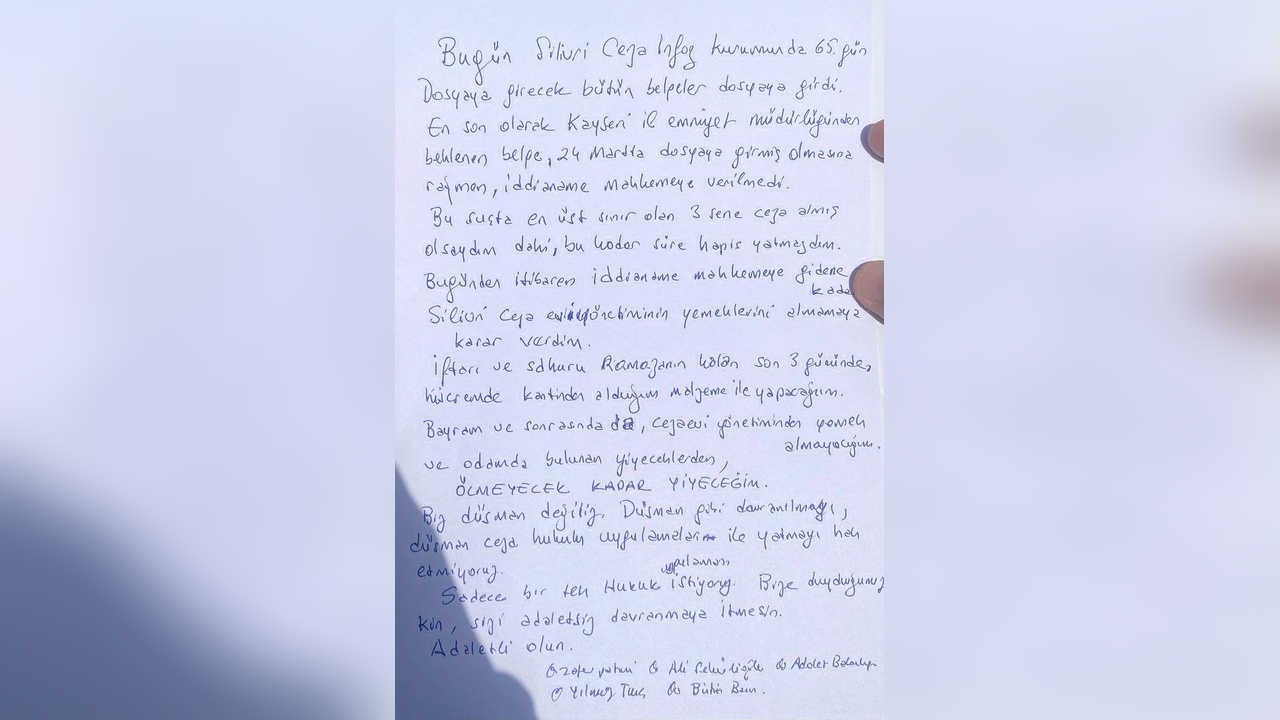 Bugün Silivri Ceza İnfaz kurumunda 65. gün
Dosyaya girecek bütün belgeler dosyaya girdi.
En son olarak Kayseri il emniyet müdürlüğünden
beklenen belge, 24 Martta dosyaya girmiş olmasına
rağmen, iddianame mahkemeye verilmedi.
Bu suçta en üst sınır olan 3 sene ceza almış
olsaydım dahi, bu kadar süre hapis yatmazdım.
Bugünden itibaren iddianame mahkemeye gidene
kadar
Silivri Ceza yönetiminin yemeklerini almamaya
karar verdim.
İftarı ve sahuru Ramazanın kalan son 3 gününde,
hücremde kantinden aldığım malzeme ile yapacağım.
Bayram ve sonrasında da, cezaevi yönetiminden yemek
almayacağım.
ve odamda bulunan yiyeceklerden,
ÖLMEYECEK KADAR YİYECEĞİM.
Biz düşman değiliz. Düşman gibi davranılmayı,
düşman ceza hukuku uygulamaları ile yatmayı hak
etmiyoruz.
uygulaması
Sadece bir tek Hukuk istiyoruz. Bize duyduğunuz
kin, sizi adaletsiz davranmaya itmesin.
Adaletli olun.
Ali Adalet
Yılmaz Tunç Bütün Basın.